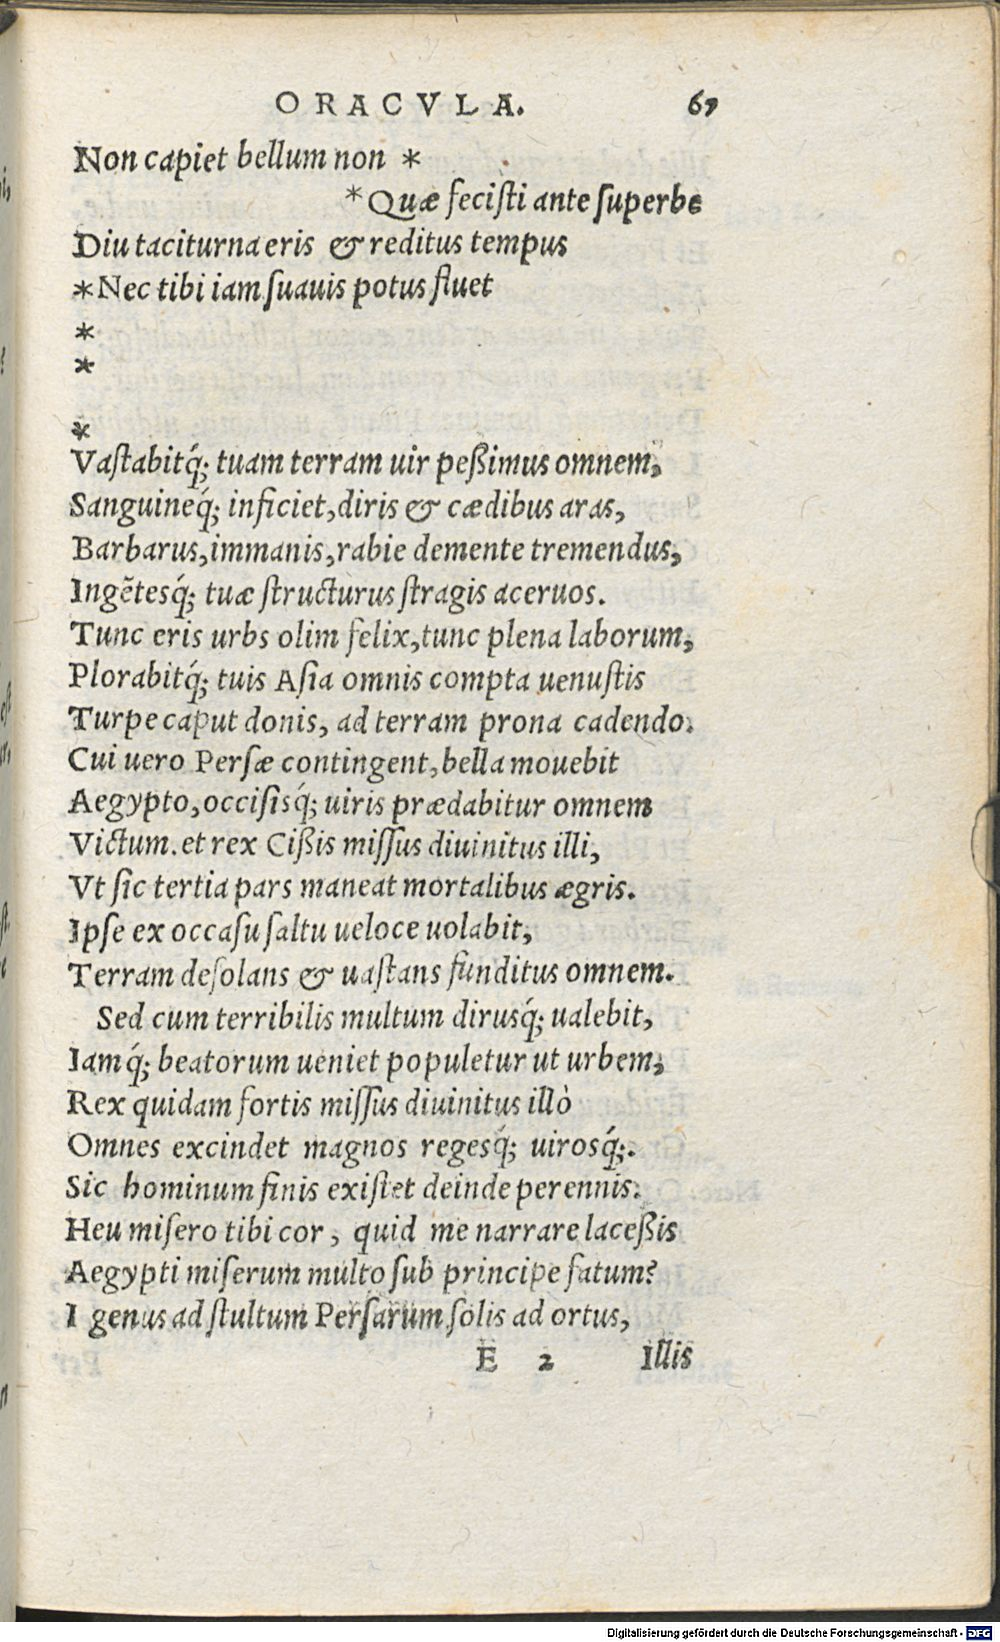 ORACVLA. 67
Non capiet bellum non *
*Quæ fecisti ante superbe
Diu taciturna eris & reditus tempus
*Nec tibi iam suauis potus fluet
*
*
*
Vastabitq́; tuam terram uir peßimus omnem,
Sanguineq́; inficiet, diris & cædibus aras,
Barbarus, immanis, rabie demente tremendus,
Ingẽtesq́; tuæ structurus stragis aceruos.
Tunc eris urbs olim felix, tunc plena laborum,
Plorabitq́; tuis Asia omnis compta uenustis
Turpe caput donis, ad terram prona cadendo.
Cui uero Persæ contingent, bella mouebit
Aegypto, occisisq́; uiris prædabitur omnem
Victum. et rex Cißis missus diuinitus illi,
Vt sic tertia pars maneat mortalibus ægris.
Ipse ex occasu saltu ueloce uolabit,
Terram desolans & uastans funditus omnem.
Sed cum terribilis multum dirusq́; ualebit,
Iamq́; beatorum ueniet populetur ut urbem,
Rex quidam fortis missus diuinitus illò
Omnes excindet magnos regesq́; uirosq́;.
Sic hominum finis existet deinde perennis.
Heu misero tibi cor, quid me narrare laceßis
Aegypti miserum multo sub principe fatum?
I genus ad stultum Persarum solis ad ortus,
E 2 Illis
Digitalisierung gefördert durch die Deutsche Forschungsgemeinschaft - DFG